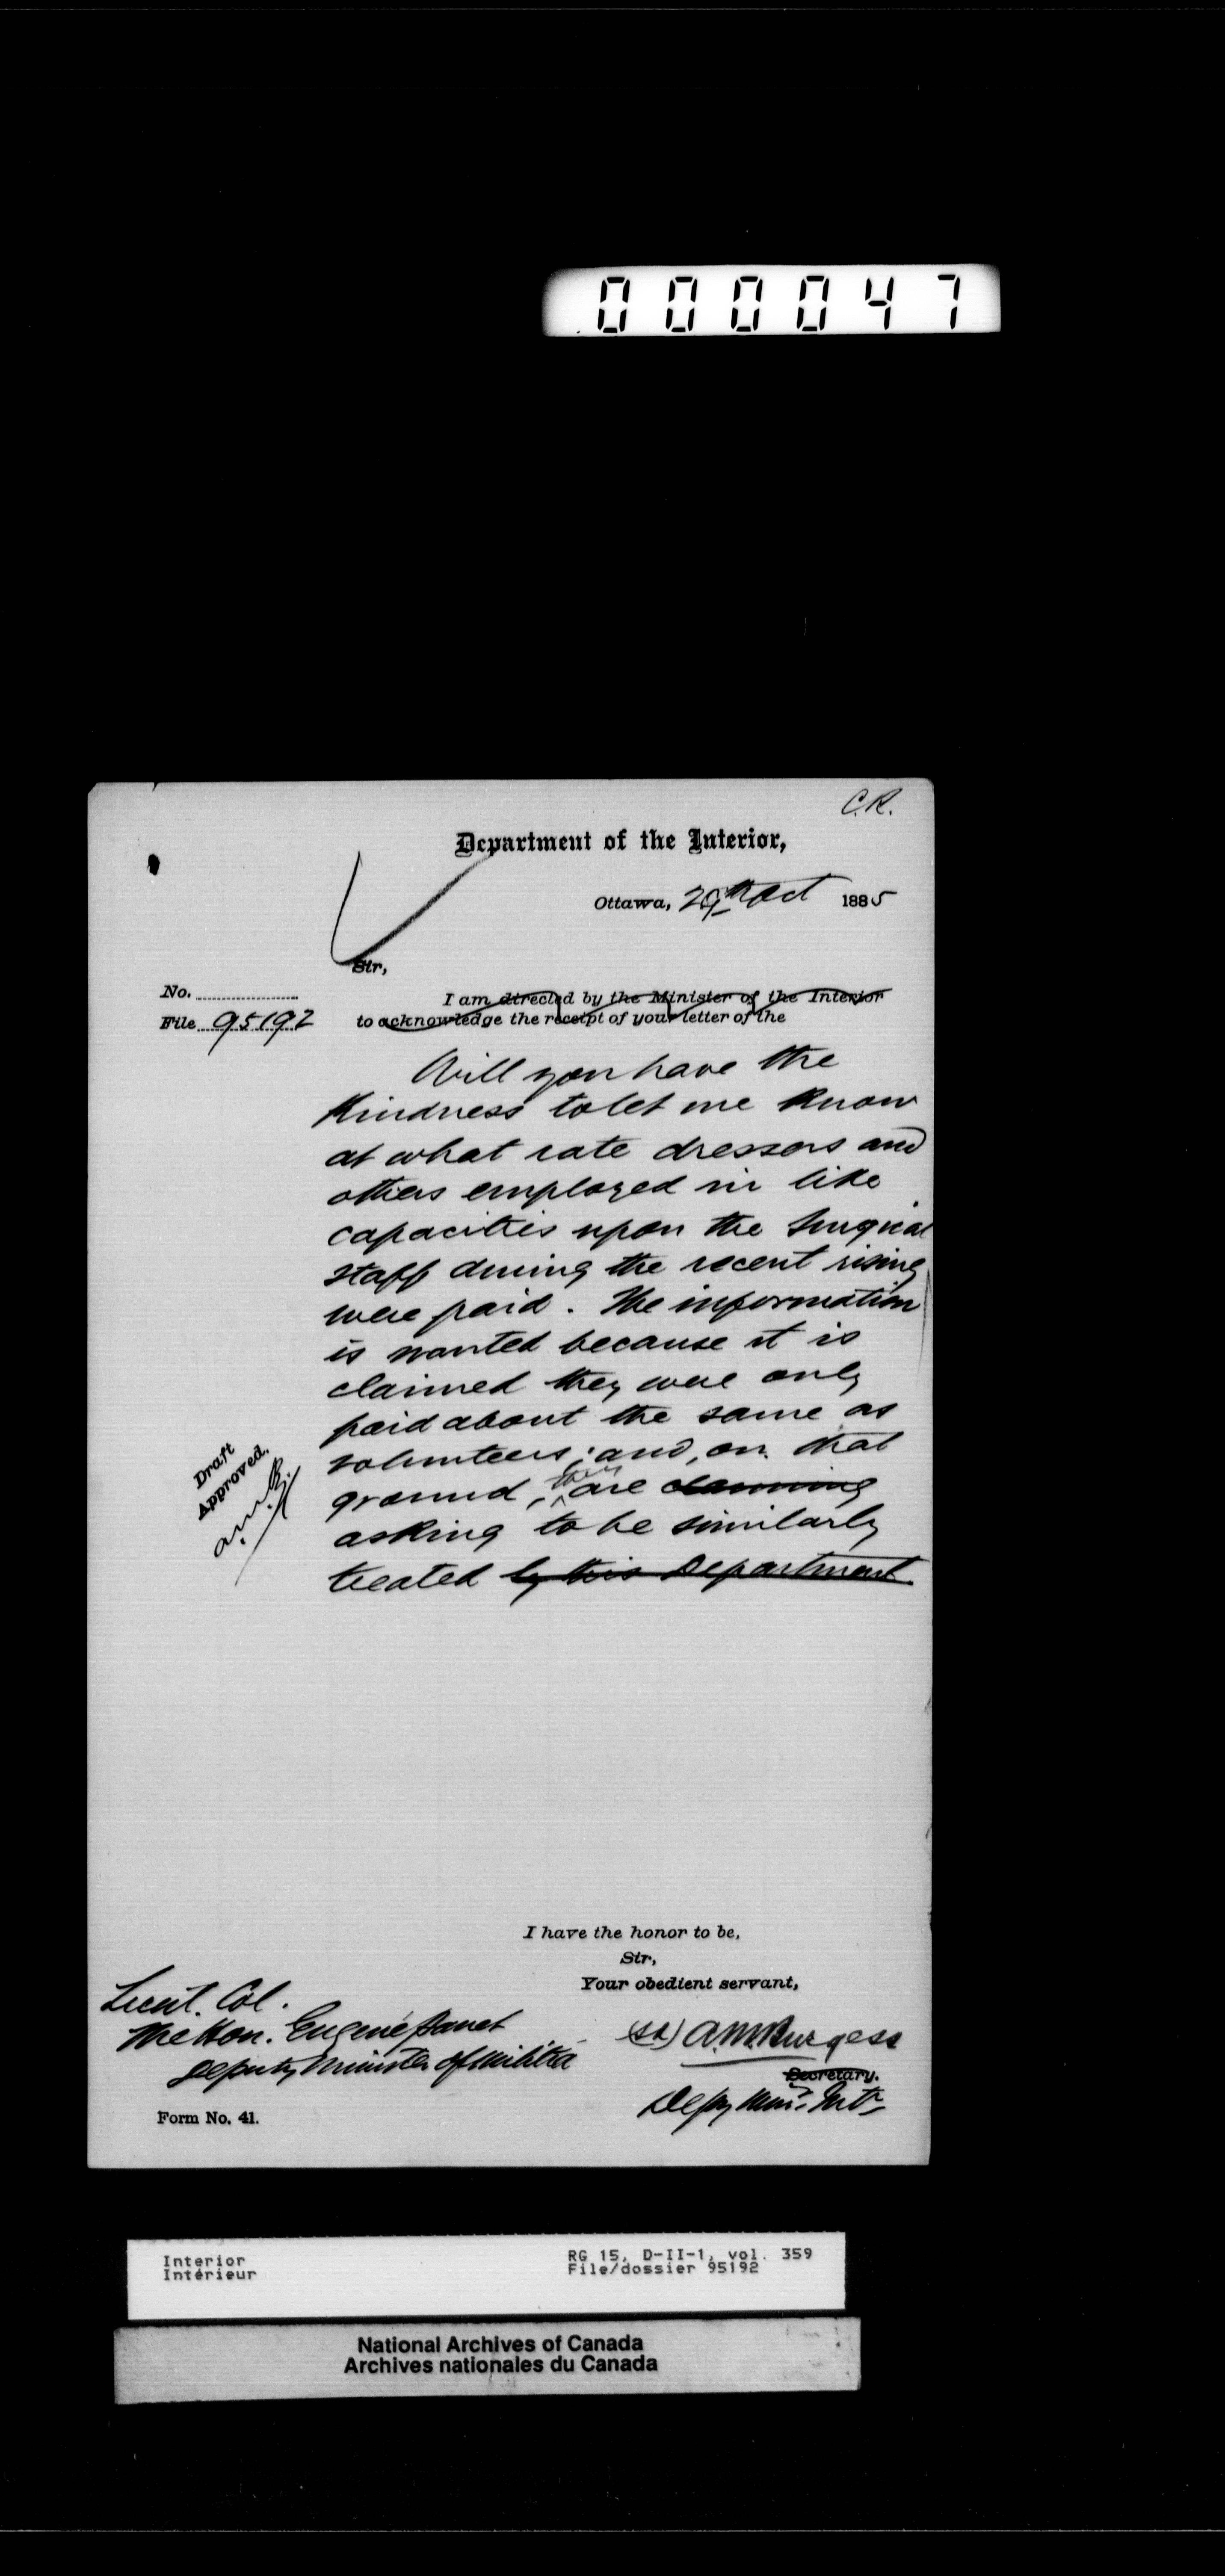 000047
C.R.
Department of the Interior,
Ottawa, 29th Oct 1885
Sir,
No.
File 95192
I am directed by the Minister of the Interior
to acknowledge the receipt of your letter of the
Will you have the
kindness to let me know
at what rate dressers and
others employed in like
capacities upon the Surgical
staff during the recent rising
were paid. The information
is wanted because it is
claimed they were only
paid about the same as
volunteers; and, on that
ground, they are claiming
asking to be similarly
treated by this Department
Draft
Approved.
A.M.B.
I have the honor to be,
Sir,
Your obedient servant,
Lieut. Col.
The Hon. Eugene Panet
Deputy Minister of Militia
(sd) A.M. Burgess
Secretary.
Depy Minr. Intr.
Form No. 41.
Interior
Intérieur
RG 15, D-II-1, vol. 359
File/dossier 95192
National Archives of Canada
Archives nationales du Canada